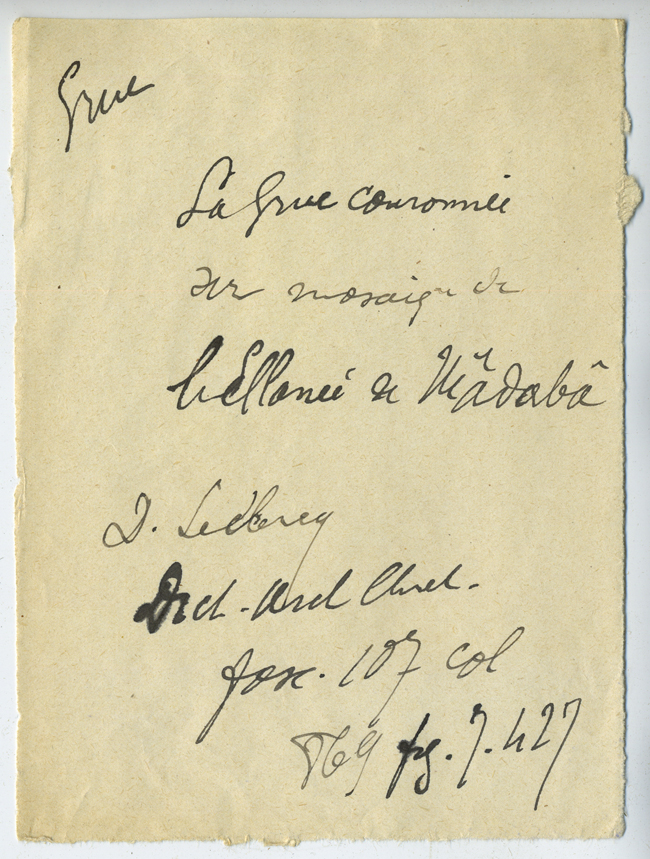 Grue
La Grue couronnée
sur mosaïque de
de Mâdabâ
D. Leclercq
Dict. Arch Chret.
fasc. 107 col
869 fig. 7.427